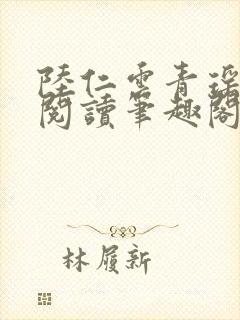 陸仁雲青瑤
閱讀筆趣閣
林履新